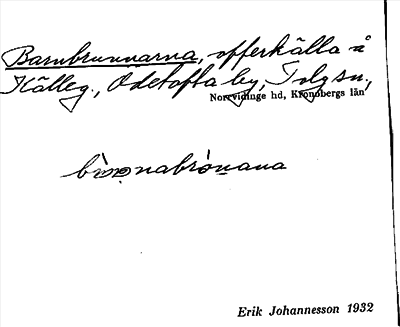 Barnbrunnarna, offerkälla å
Källeg., Odetofta by, Tolg sn,
Norrvidinge hd, Kronobergs län
Erik Johannesson 1932